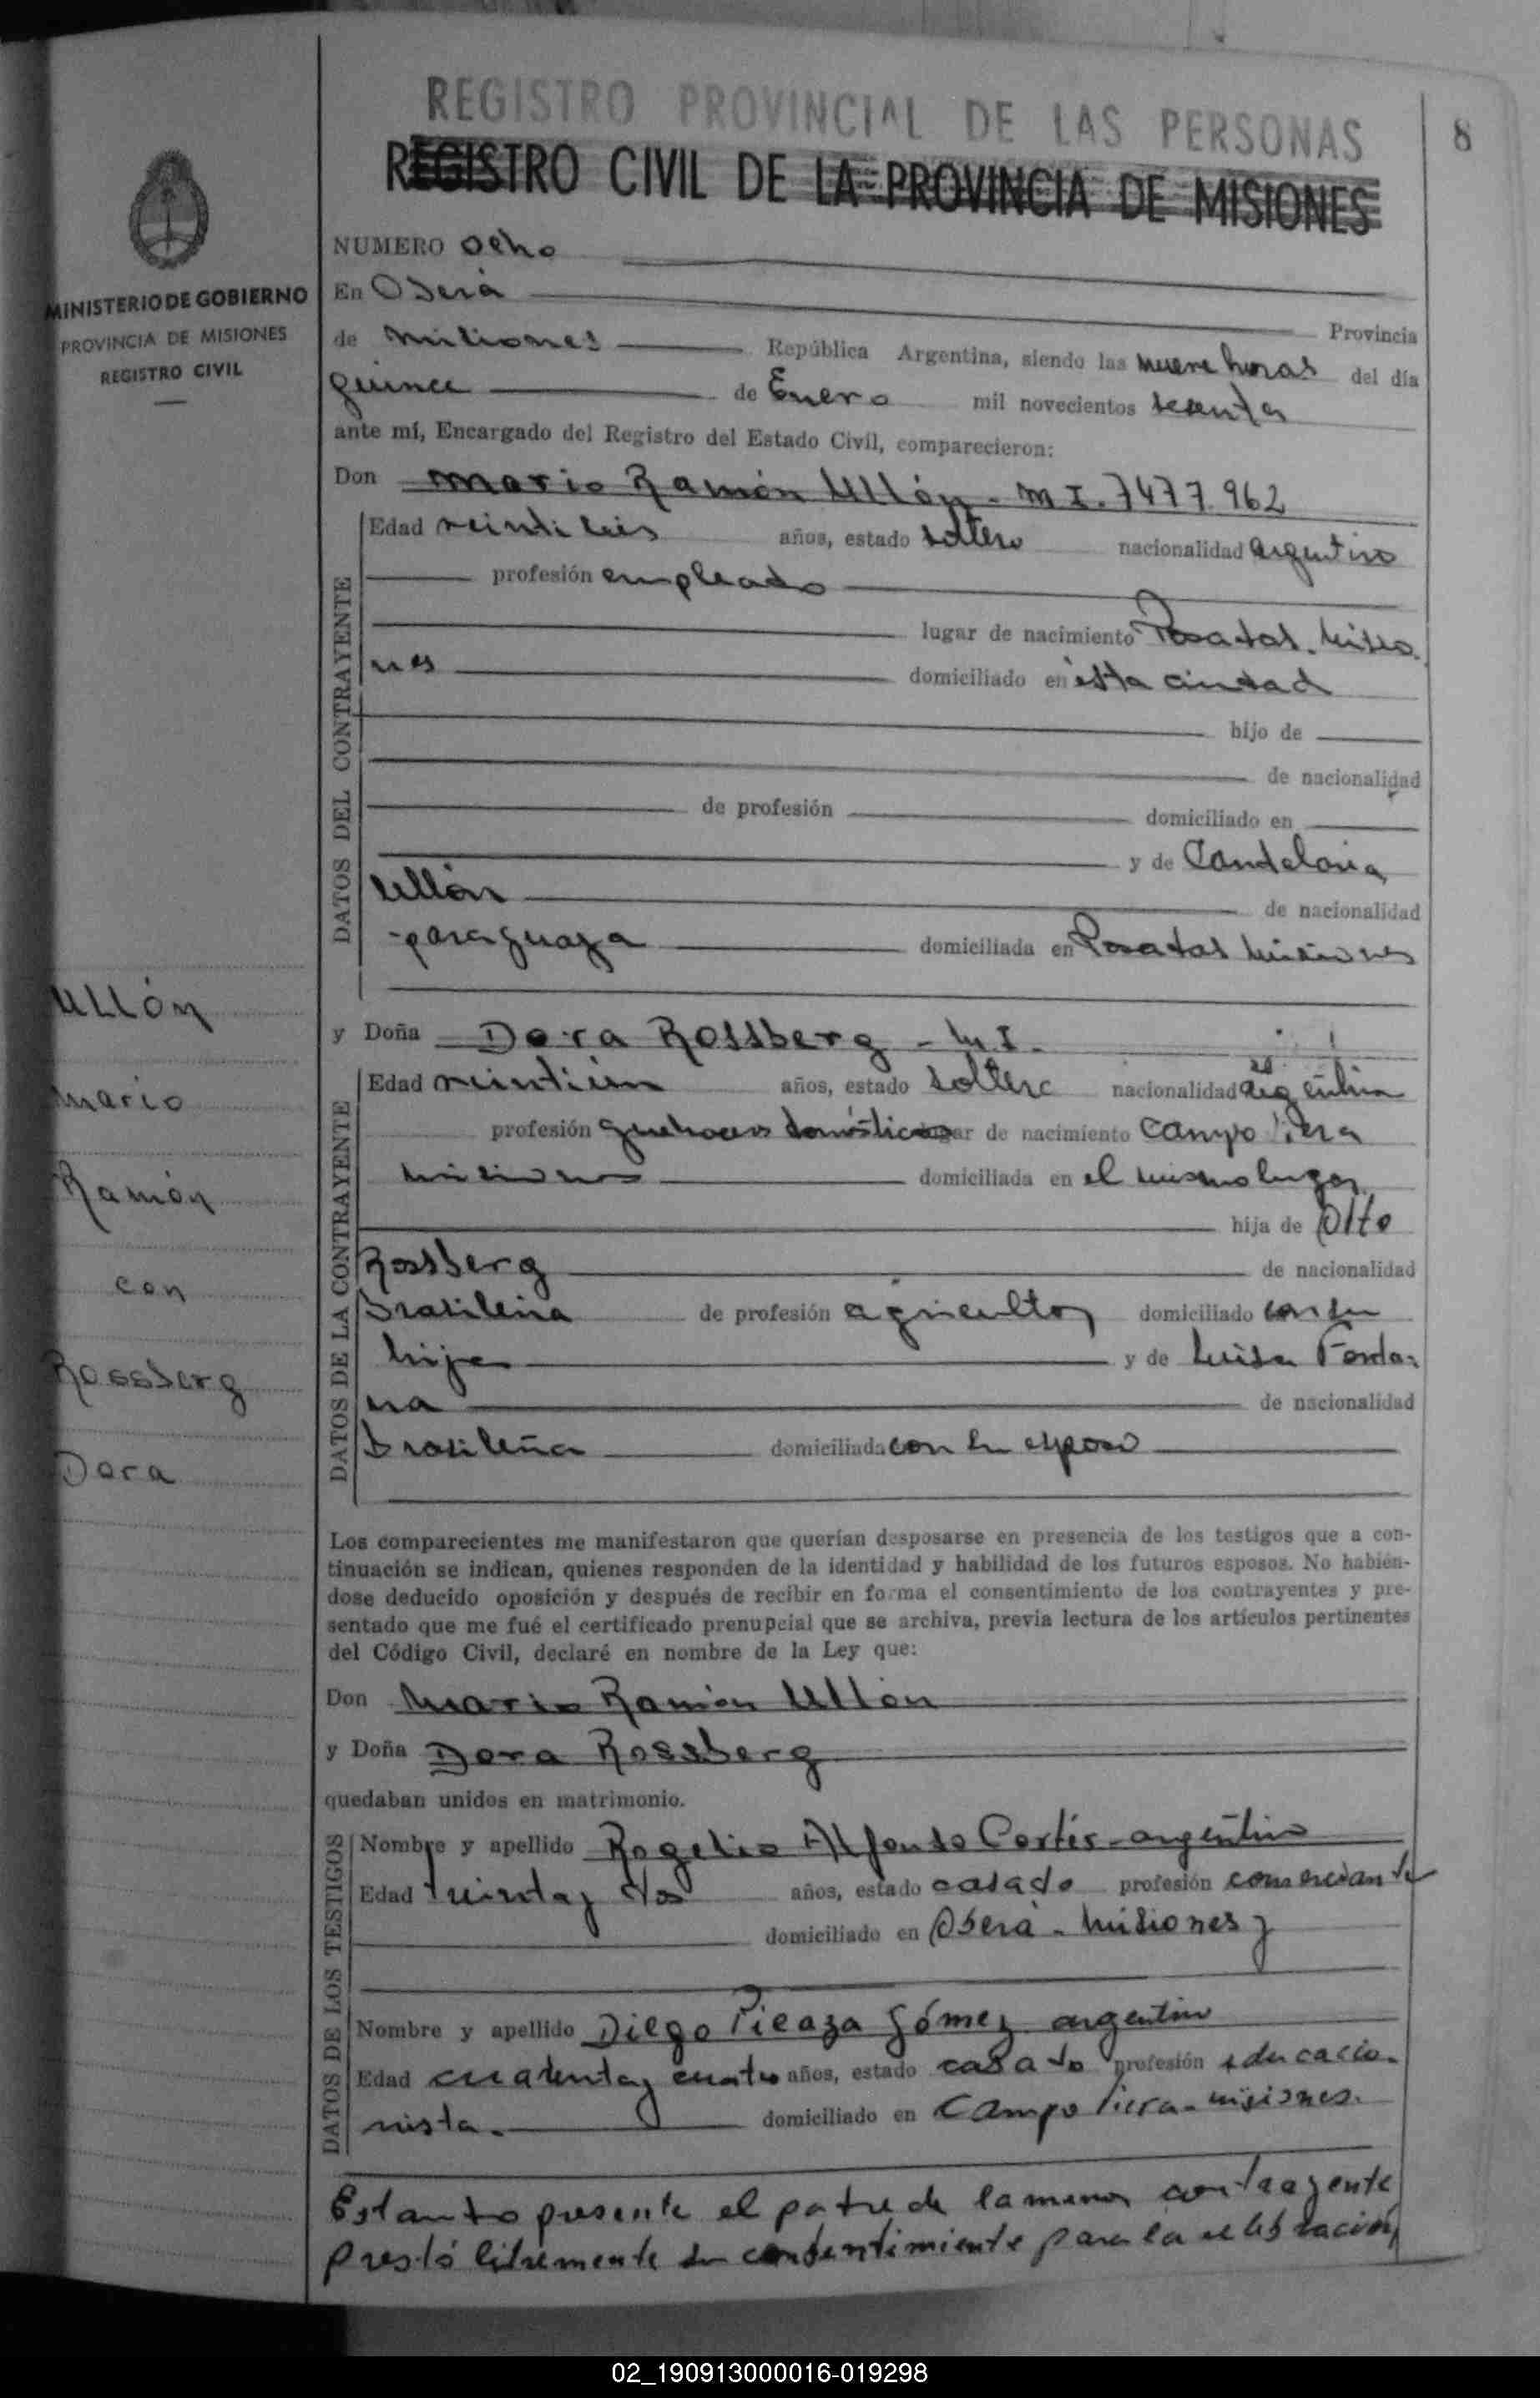 REGISTRO PROVINCIAL DE LAS PERSONAS
8
REGISTRO CIVIL DE LA PROVINCIA DE MISIONES
MINISTERIO DE GOBIERNO
PROVINCIA DE MISIONES
REGISTRO CIVIL
NUMERO ocho
En Oberá Provincia
de Misiones República Argentina, siendo las nueve horas del día
quince de Enero mil novecientos sesenta
ante mí, Encargado del Registro del Estado Civil, comparecieron:
Don Mario Ramón Ullón - M I. 7477.962
DATOS DEL CONTRAYENTE
Edad veintiseis años, estado soltero nacionalidad argentino
profesión empleado
lugar de nacimiento Posadas. Misio
nes domiciliado en ésta ciudad
hijo de
de nacionalidad
de profesión domiciliado en
y de Candelaria
Ullón de nacionalidad
paraguaya domiciliada en Posadas Misiones
y Doña Dora Rossberg - M. I.
DATOS DE LA CONTRAYENTE
Edad veintiún años, estado soltera nacionalidad argentina
profesión quehaceres domésticos lugar de nacimiento Campo Viera
Misiones domiciliada en el mismo lugar
hija de Otto
Rossberg de nacionalidad
brasileña de profesión agricultor domiciliado con su
hija y de Luisa
na de nacionalidad
brasileña domiciliada con su esposo
Ullón
Mario
Ramón
con
Rossberg
Dora
Los comparecientes me manifestaron que querían desposarse en presencia de los testigos que a con-
tinuación se indican, quienes responden de la identidad y habilidad de los futuros esposos. No habién-
dose deducido oposición y después de recibir en forma el consentimiento de los contrayentes y pre-
sentado que me fué el certificado prenupcial que se archiva, previa lectura de los artículos pertinentes
del Código Civil, declaré en nombre de la Ley que:
Don Mario Ramón Ullón
y Doña Dora Rossberg
quedaban unidos en matrimonio.
DATOS DE LOS TESTIGOS
Nombre y apellido Rogelio Alfonso Cortés - argentino
Edad treinta y dos años, estado casado profesión comerciante
domiciliado en Oberá - Misiones y
Nombre y apellido Diego Picaza Gómez argentino
Edad cuarenta y cuatro años, estado casado profesión educacio-
nista. domiciliado en Campo Viera - Misiones.
Estando presente el padre de la menor contrayente
prestó libremente su consentimiento para la celebración
02_190913000016-019298